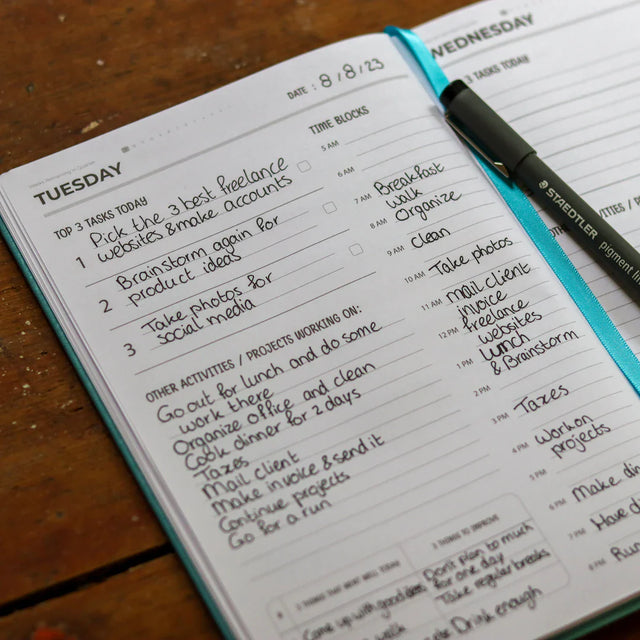 TUESDAY
DATE : 8/8/23
TOP 3 TASKS TODAY
1 Pick the 3 best freelance
websites & make accounts
2 Brainstorm again for
product ideas
3 Take photos for
social media
OTHER ACTIVITIES / PROJECTS WORKING ON:
Go out for lunch and do some
work there
Organize office and clean
Cook dinner for 2 days
Taxes
Mail client
Make invoice & send it
Continue projects
Go for a run
3 THINGS THAT WENT WELL TODAY
Come up with good
walk
3 THINGS TO IMPROVE
Don't plan to much
for one day
Take regular breaks
Drink enough
TIME BLOCKS
5 AM
6 AM
7 AM Breakfast
walk
8 AM Organize
9 AM Clean
10 AM Take photos
11 AM Mail client
invoice
12 PM freelance
websites
1 PM Lunch
& Brainstorm
2 PM
3 PM Taxes
4 PM Work on
projects
5 PM
6 PM Make
7 PM Have
8 PM Run
WEDNESDAY
3 TASKS TODAY
STAEDTLER
pigment